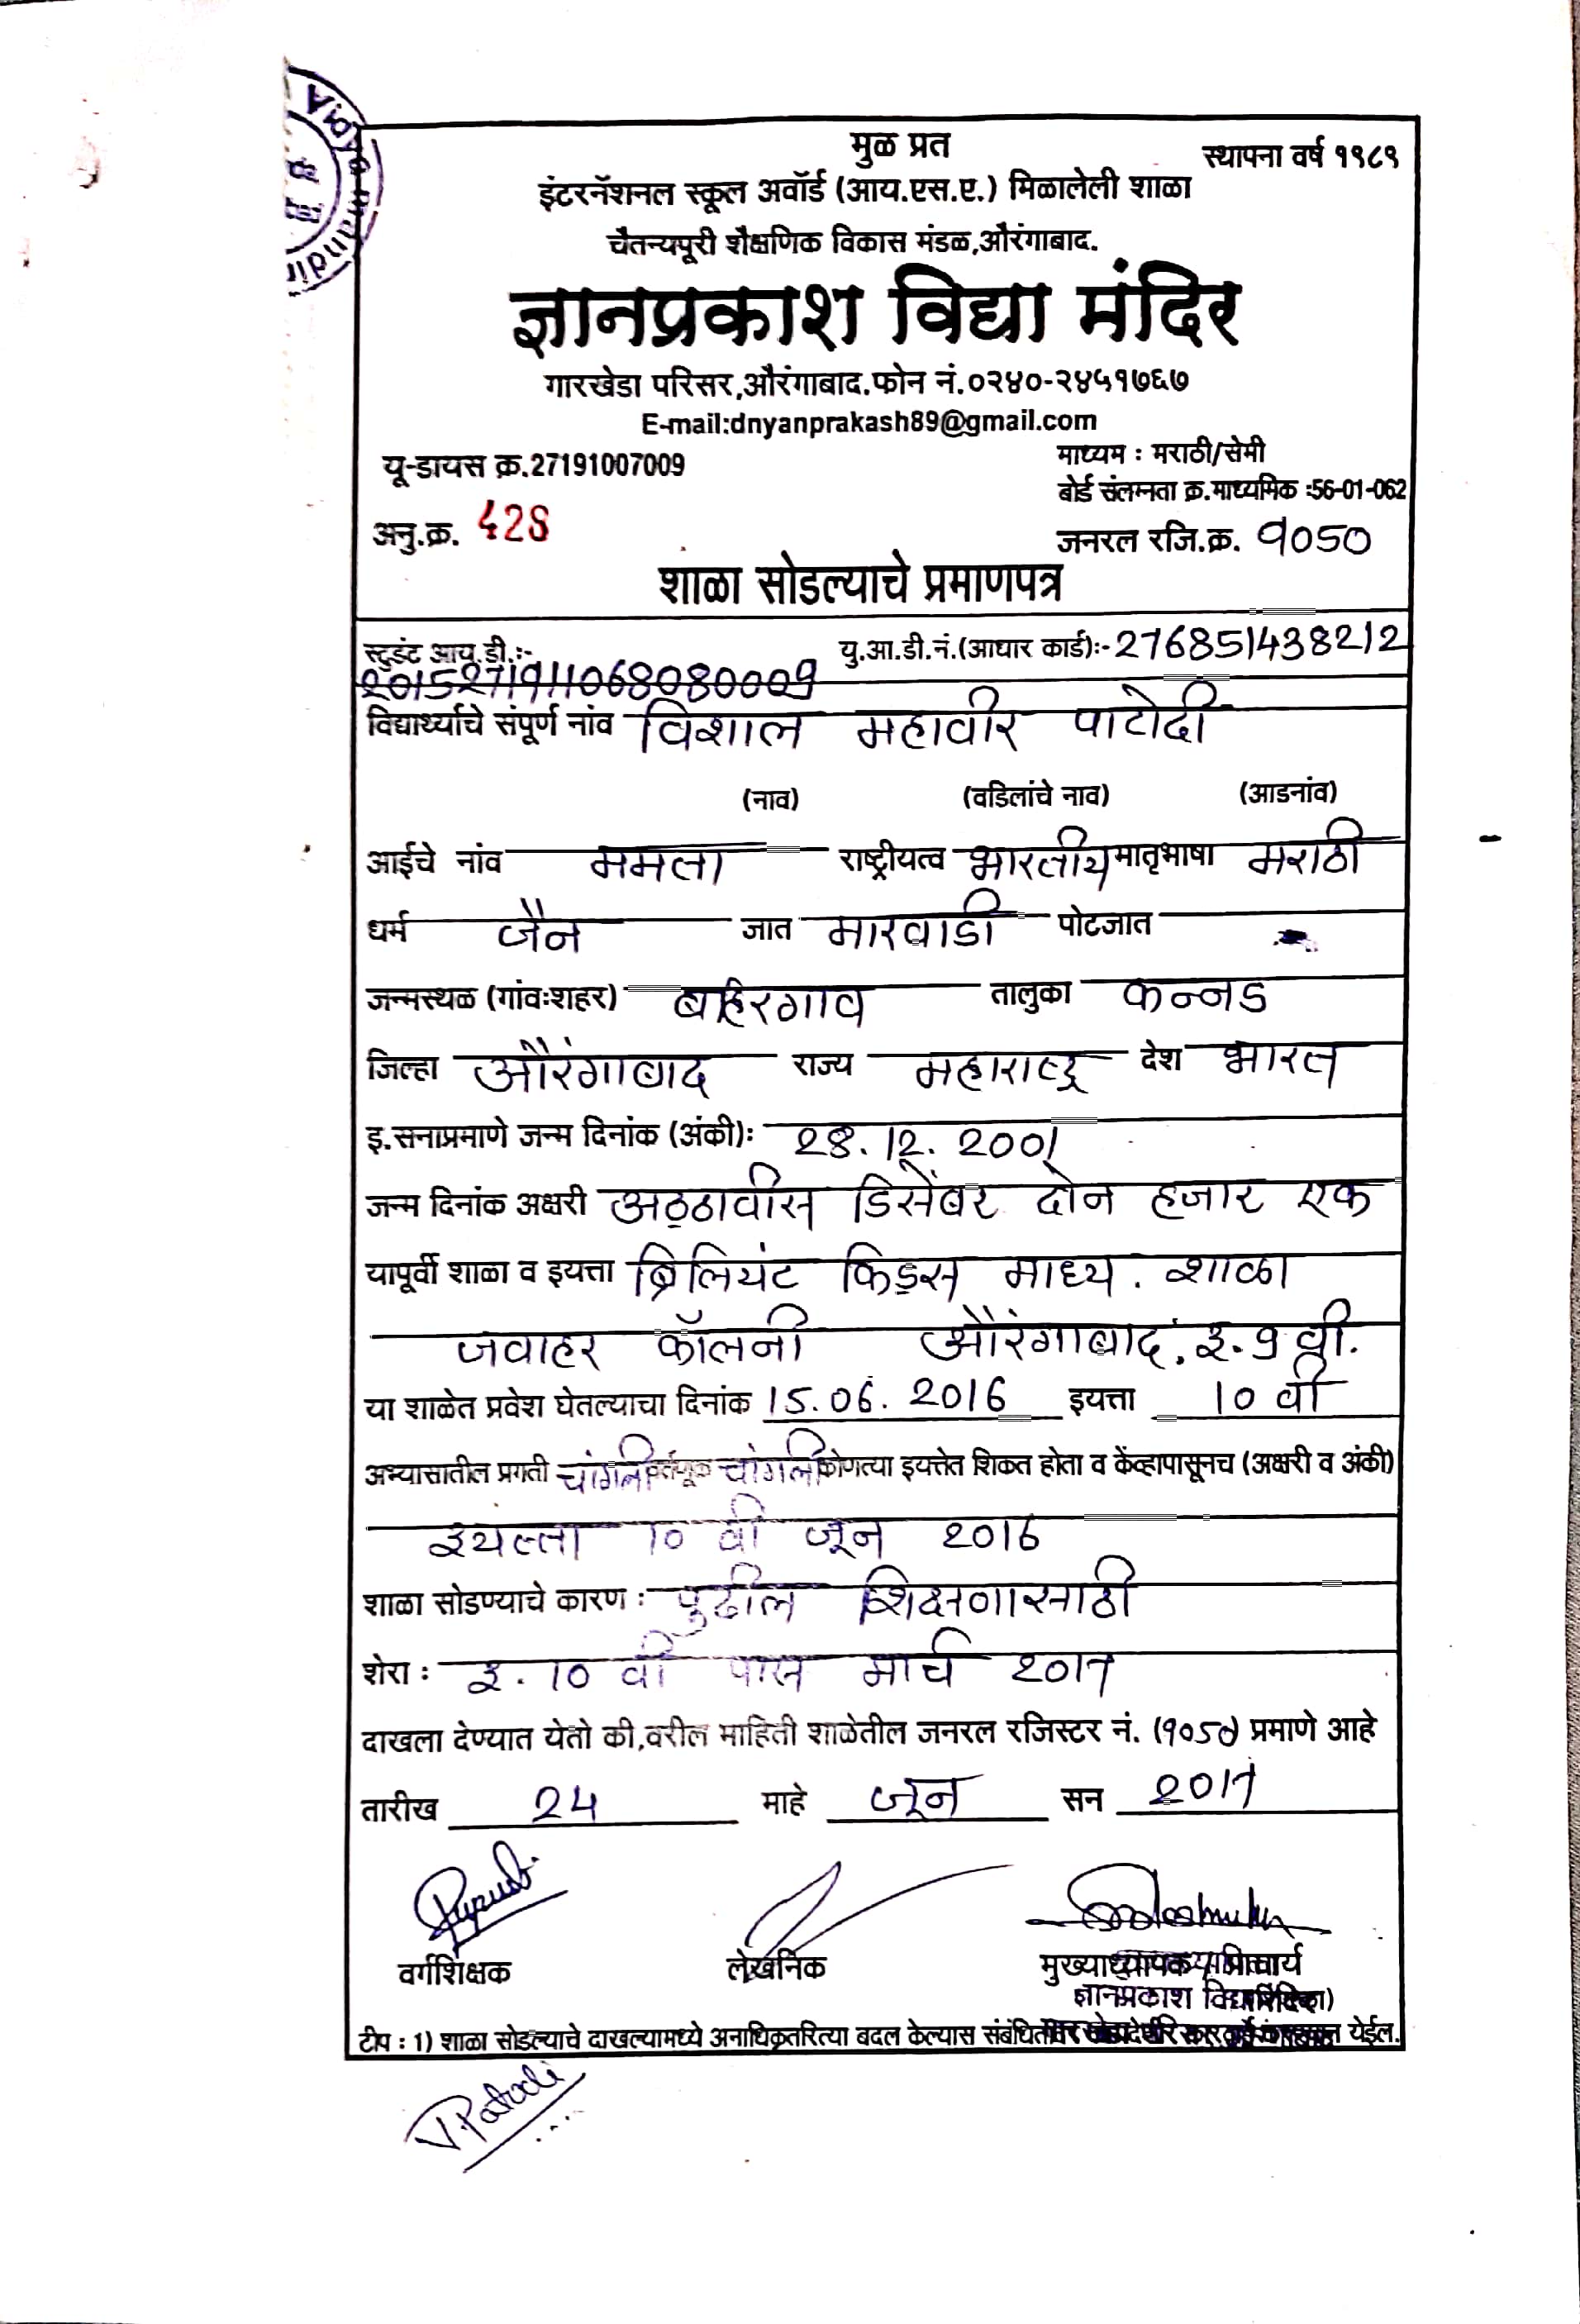 Vidya Mandir
मुळ प्रत
स्थापना वर्ष १९८९
इंटरनॅशनल स्कूल अवॉर्ड (आय.एस.ए.) मिळालेली शाळा
चैतन्यपूरी शैक्षणिक विकास मंडळ,औरंगाबाद.
ज्ञानप्रकाश विद्या मंदिर
गारखेडा परिसर,औरंगाबाद.फोन नं.०२४०-२४५१७६७
E-mail:dnyanprakash89@gmail.com
यू-डायस क्र.27191007009 माध्यम : मराठी/सेमी
बोर्ड संलग्नता क्र.माध्यमिक :56-01-062
अनु.क्र. 428 जनरल रजि.क्र. 9050
शाळा सोडल्याचे प्रमाणपत्र
स्टुडंट आय.डी.:- यु.आ.डी.नं.(आधार कार्ड):- 276851438212
2015271911068080009
विद्यार्थ्याचे संपूर्ण नांव विशाल महावीर पाटोदी
(नाव) (वडिलांचे नाव) (आडनांव)
आईचे नांव ममता राष्ट्रीयत्व भारतीय मातृभाषा मराठी
धर्म जैन जात मारवाडी पोटजात -
जन्मस्थळ (गांव:शहर) बहिरगाव तालुका कन्नड
जिल्हा औरंगाबाद राज्य महाराष्ट्र देश भारत
इ.सनाप्रमाणे जन्म दिनांक (अंकी): 28.12.2001
जन्म दिनांक अक्षरी अठ्ठावीस डिसेंबर दोन हजार एक
यापूर्वी शाळा व इयत्ता ब्रिलियंट किड्स माध्य. शाळा
जवाहर कॉलनी औरंगाबाद. इ. 9 वी.
या शाळेत प्रवेश घेतल्याचा दिनांक 15.06.2016 इयत्ता 10 वी
अभ्यासातील प्रगती चांगली वर्तणूक चांगली कोणत्या इयत्तेत शिकत होता व केंव्हापासूनच (अक्षरी व अंकी)
इयत्ता 10 वी जून 2016
शाळा सोडण्याचे कारण : पुढील शिक्षणासाठी
शेरा : इ. 10 वी पास मार्च 2017
दाखला देण्यात येतो की,वरील माहिती शाळेतील जनरल रजिस्टर नं. (9050) प्रमाणे आहे
तारीख 24 माहे जून सन 2017
वर्गशिक्षक लेखनिक मुख्याध्यापक
ज्ञानप्रकाश
टीप : 1) शाळा सोडल्याचे दाखल्यामध्ये अनाधिकृतरित्या बदल केल्यास येईल.
V.Patodi